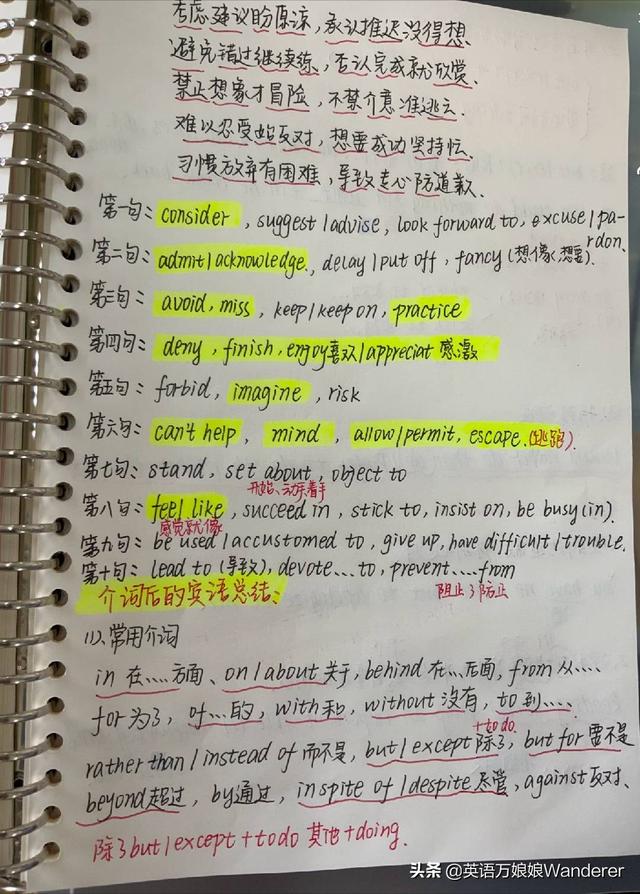 考虑建议盼原凉，承认推迟没得想、
避免错过继续练，否认完成就欣赏、
禁止想象才冒险，不禁介意准逃亡、
难以忍受始反对，想要成功坚持忙、
习惯放弃有困难，导致专心防道歉、
第一句：consider，suggest/advise，look forward to，excuse/pa-
rdon.
第二句：admit/acknowledge，delay/put off，fancy(想像,想要).
第三句：avoid，miss，keep/keep on，practice
第四句：deny，finish，enjoy喜欢/appreciat 感激
第五句：forbid，imagine，risk
第六句：can't help，mind，allow/permit，escape.(逃跑)
第七句：stand，set about，object to
开始、动手着手
第八句：feel like，succeed in，stick to，insist on，be busy(in).
感觉就像
第九句：be used/accustomed to，give up，have difficult/trouble.
第十句：lead to(导致)，devote...to，prevent....from
阻止了防止
介词后的宾语总结：
(1)、常用介词
in 在....方面、on/about关于，behind 在...后面，from 从....
for为了，of...的，with和，without没有，to到....
+to do.
rather than/instead of 而不是，but/except除了，but for 要不是
beyond超过，by通过，in spite of/despite尽管，against反对、
除了but/except+to do 其他+doing.
头条@英语万娘娘Wanderer